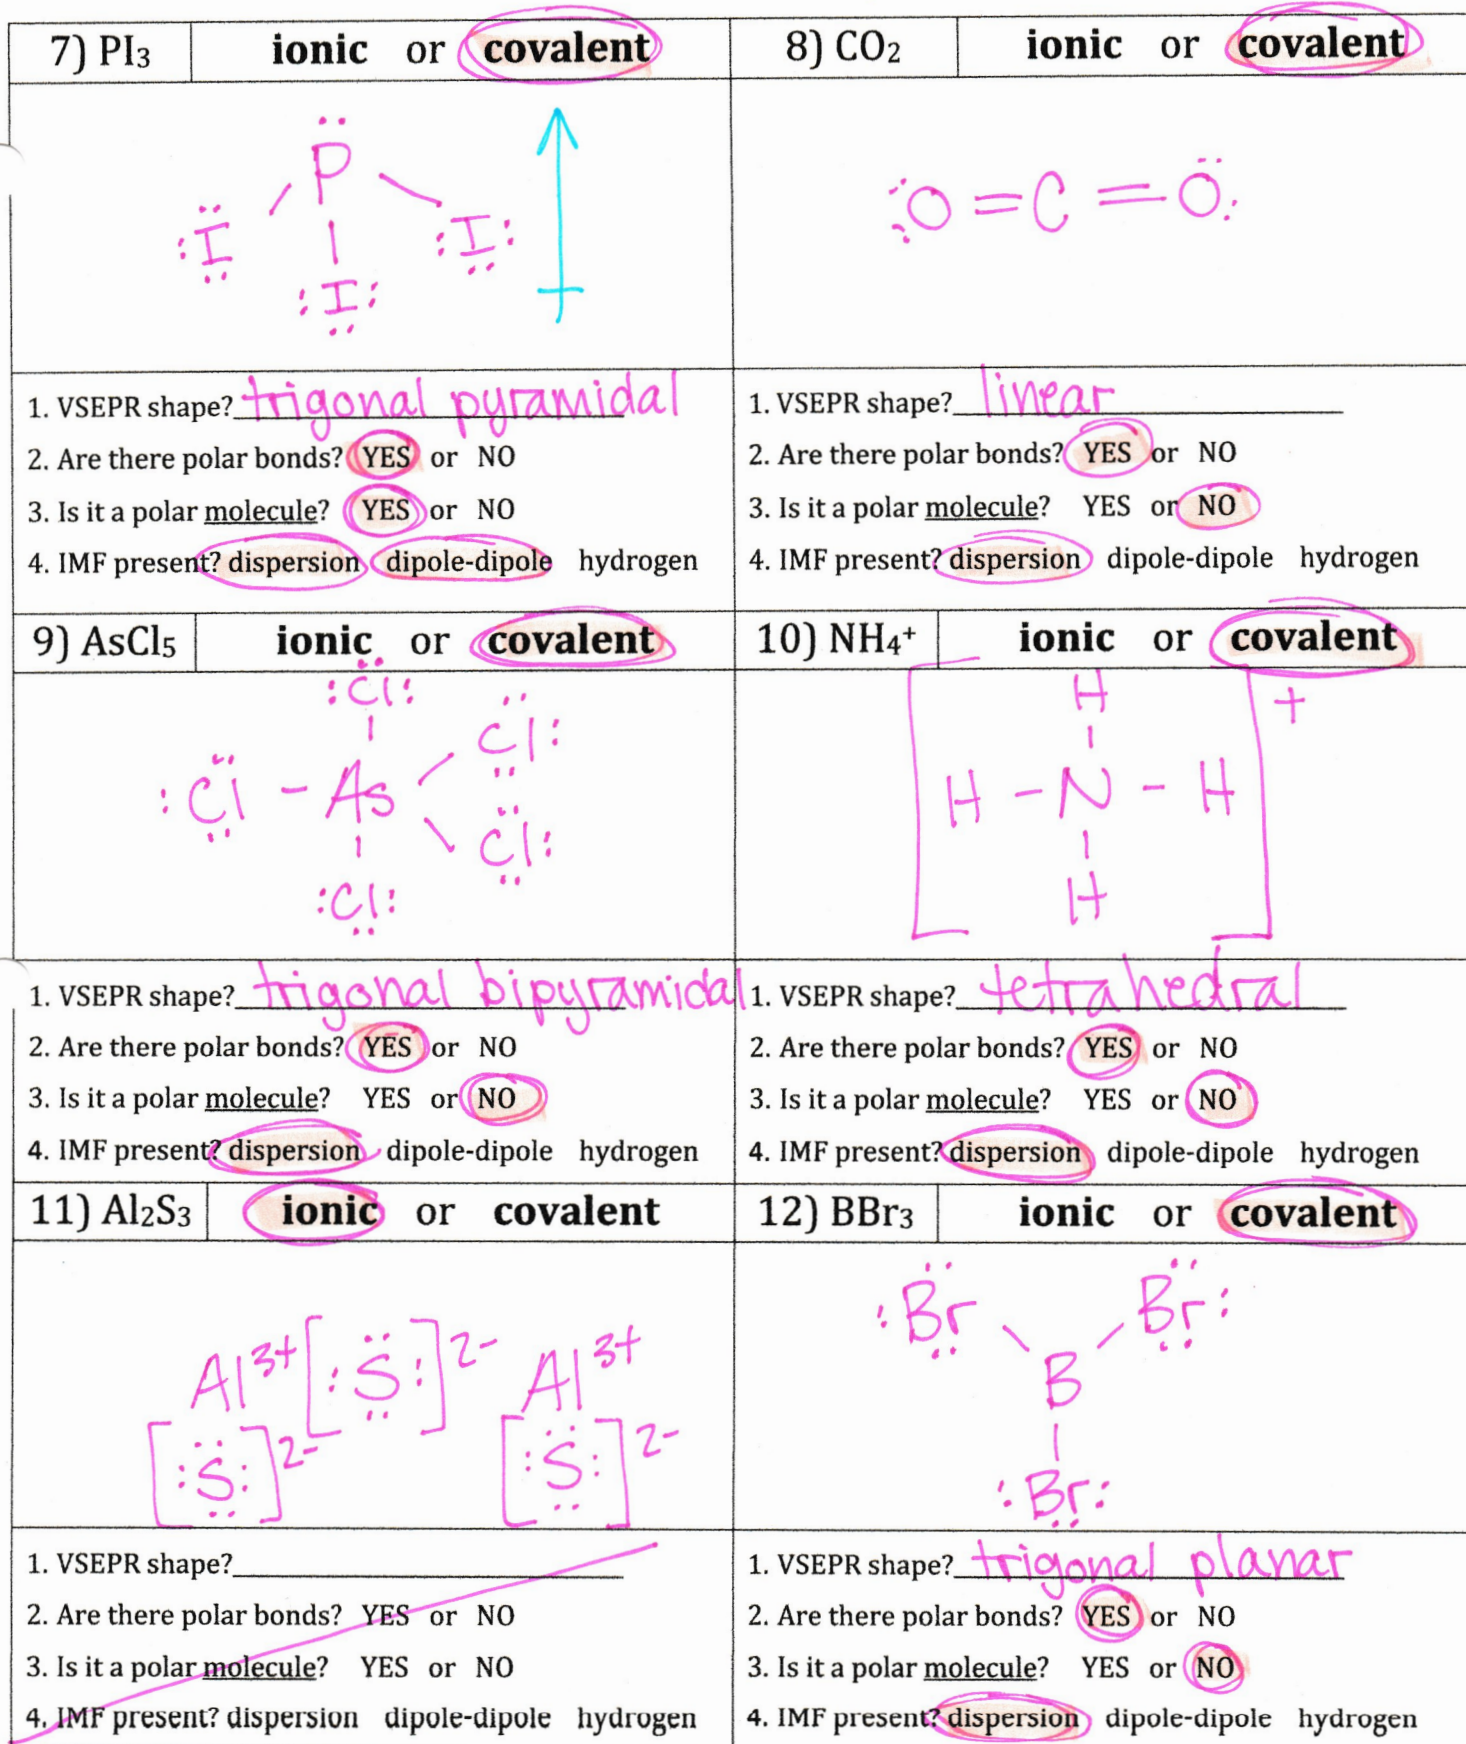 7) PI₃ ionic or covalent
P
I I
I
1. VSEPR shape? trigonal pyramidal
2. Are there polar bonds? YES or NO
3. Is it a polar molecule? YES or NO
4. IMF present? dispersion dipole-dipole hydrogen
8) CO₂ ionic or covalent
O = C = O
1. VSEPR shape? linear
2. Are there polar bonds? YES or NO
3. Is it a polar molecule? YES or NO
4. IMF present? dispersion dipole-dipole hydrogen
9) AsCl₅ ionic or covalent
Cl
Cl
Cl - As
Cl
Cl
1. VSEPR shape? trigonal bipyramidal
2. Are there polar bonds? YES or NO
3. Is it a polar molecule? YES or NO
4. IMF present? dispersion dipole-dipole hydrogen
10) NH₄⁺ ionic or covalent
H +
H - N - H
H
1. VSEPR shape? tetrahedral
2. Are there polar bonds? YES or NO
3. Is it a polar molecule? YES or NO
4. IMF present? dispersion dipole-dipole hydrogen
11) Al₂S₃ ionic or covalent
Al³⁺ [S]²⁻ Al³⁺
[S]²⁻ [S]²⁻
1. VSEPR shape?
2. Are there polar bonds? YES or NO
3. Is it a polar molecule? YES or NO
4. IMF present? dispersion dipole-dipole hydrogen
12) BBr₃ ionic or covalent
Br Br
B
Br
1. VSEPR shape? trigonal planar
2. Are there polar bonds? YES or NO
3. Is it a polar molecule? YES or NO
4. IMF present? dispersion dipole-dipole hydrogen